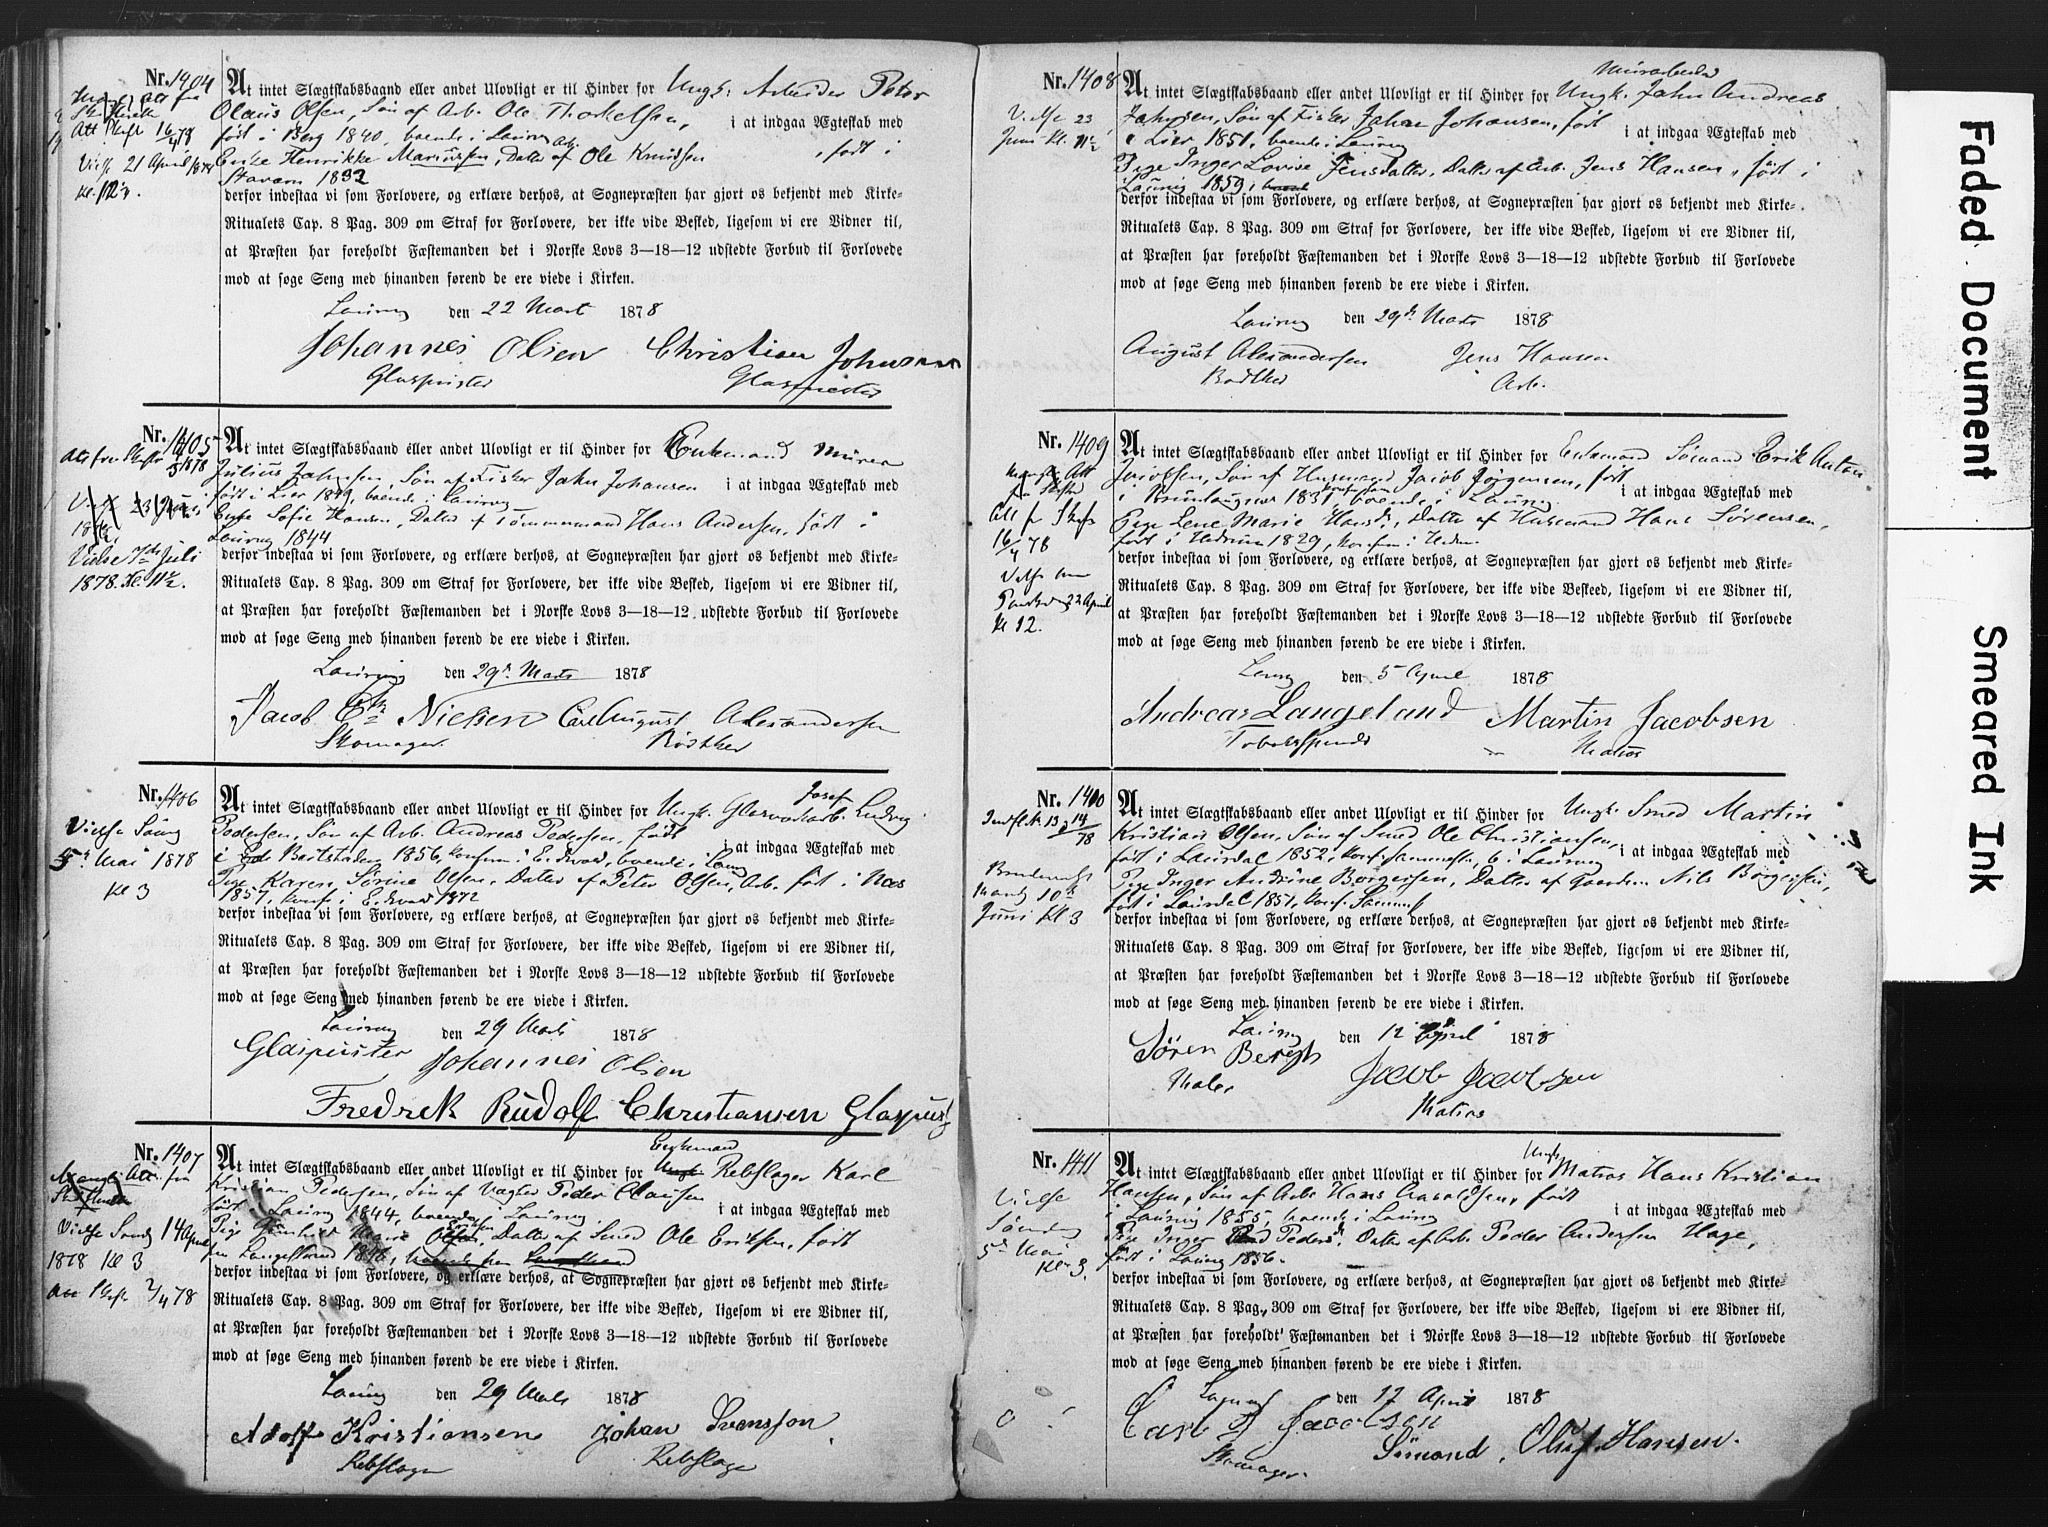 Nr. 1404
At intet Slægtskabsbaand eller andet Ulovligt er til Hinder for Ungk. Arbeider Peter
Olaus Olsen, Søn af Arb. Ole Thorkelsen,
født i Berg 1840, boende i Laurvig i at indgaa Ægteskab med
Enke Henrikke Mariussen, Datter af Arb. Ole Knudsen, født i
Stavern 1832
derfor indestaa vi som Forlovere, og erklære derhos, at Sognepræsten har gjort os bekjendt med Kirke-
Ritualets Cap. 8 Pag. 309 om Straf for Forlovere, der ikke vide Besked, ligesom vi ere Vidner til,
at Præsten har foreholdt Fæstemanden det i Norske Lovs 3—18—12 udstedte Forbud til Forlovede
mod at søge Seng med hinanden førend de ere viede i Kirken.
Laurvig den 22 Mart 1878
Johannes Olsen Christian Johnsen
Glaspuster Glasmester
Att Skft 16/4 78
Vielse 21 April 1878
Kl. 12½.
Nr. 1405
At intet Slægtskabsbaand eller andet Ulovligt er til Hinder for Enkemand Murer
Julius Jahnsen, Søn af Fisker Jahn Johansen i at indgaa Ægteskab med
født i Lier 1849, boende i Laurvig
Enke Sofie Hansen, Datter af Tømmermand Hans Andersen, født i
Laurvig 1844
derfor indestaa vi som Forlovere, og erklære derhos, at Sognepræsten har gjort os bekjendt med Kirke-
Ritualets Cap. 8 Pag. 309 om Straf for Forlovere, der ikke vide Besked, ligesom vi ere Vidner til,
at Præsten har foreholdt Fæstemanden det i Norske Lovs 3—18—12 udstedte Forbud til Forlovede
mod at søge Seng med hinanden førend de ere viede i Kirken.
Laurvig den 29de Marts 1878
Jacob Nielsen Carl August Alexandersen
Skomager Bødtker
Vielse 7de Juli
1878. Kl. 11½.
Nr. 1406
At intet Slægtskabsbaand eller andet Ulovligt er til Hinder for Ungk. Glasværkarb. Josef Ludvig
Pedersen, Søn af Arb. Andreas Pedersen, født i at indgaa Ægteskab med
i Beitstaden 1856, konfirm i Eidsvold, boende i Laurvig
Pige Karen Sørine Olsen, Datter af Peter Olsen, Arb. født i Næs
1857, konf i Eidsvold 1872
derfor indestaa vi som Forlovere, og erklære derhos, at Sognepræsten har gjort os bekjendt med Kirke-
Ritualets Cap. 8 Pag. 309 om Straf for Forlovere, der ikke vide Besked, ligesom vi ere Vidner til,
at Præsten har foreholdt Fæstemanden det i Norske Lovs 3—18—12 udstedte Forbud til Forlovede
mod at søge Seng med hinanden førend de ere viede i Kirken.
Laurvig den 29 Marts 1878
Glaspuster Johannes Olsen
Fredrek Rudolf Christiansen Glaspust
Vielse Søndag
5te Mai 1878
Kl 3
Nr. 1407
At intet Slægtskabsbaand eller andet Ulovligt er til Hinder for Enkemand Rebslager Karl
Kristian Pedersen, Søn af Vægter Peder Clausen
født i Laurvig 1844, boende i Laurvig i at indgaa Ægteskab med
Pige Marie Eriksen, Datter af Smed Ole Eriksen, født
paa Langesund 1846,
derfor indestaa vi som Forlovere, og erklære derhos, at Sognepræsten har gjort os bekjendt med Kirke-
Ritualets Cap. 8 Pag. 309 om Straf for Forlovere, der ikke vide Besked, ligesom vi ere Vidner til,
at Præsten har foreholdt Fæstemanden det i Norske Lovs 3—18—12 udstedte Forbud til Forlovede
mod at søge Seng med hinanden førend de ere viede i Kirken.
Laurvig den 29 Marts 1878
Adolf Kristiansen Johan Svensson
Rebslager Rebslager
Vielse Søndag 14 April
1878 Kl 3
Att Skft 2/4 78
Nr. 1408
At intet Slægtskabsbaand eller andet Ulovligt er til Hinder for Ungk. Murarbeider Jahn Andreas
Jahnsen, Søn af Fisker Jahn Johansen, født
i Lier 1851, boende i Laurvig i at indgaa Ægteskab med
Pige Inger Lovise Jensdatter, Datter af Arb. Jens Hansen, født i
Laurvig 1859,
derfor indestaa vi som Forlovere, og erklære derhos, at Sognepræsten har gjort os bekjendt med Kirke-
Ritualets Cap. 8 Pag. 309 om Straf for Forlovere, der ikke vide Besked, ligesom vi ere Vidner til,
at Præsten har foreholdt Fæstemanden det i Norske Lovs 3—18—12 udstedte Forbud til Forlovede
mod at søge Seng med hinanden førend de ere viede i Kirken.
Laurvig den 29de Marts 1878
August Alexandersen Jens Hansen
Bødtker Arb.
Vielse 23
Juni Kl. 11½
Nr. 1409
At intet Slægtskabsbaand eller andet Ulovligt er til Hinder for Enkemand Sømand Erik Anton
Jacobsen, Søn af Husmand Jacob Jørgensen, født
i Brunlaugnes 1831, boende i Laurvig i at indgaa Ægteskab med
Pige Lene Marie Hansd., Datter af Husmand Hans Sørensen,
født i Hedrum 1829, konfirm i Hedrum
derfor indestaa vi som Forlovere, og erklære derhos, at Sognepræsten har gjort os bekjendt med Kirke-
Ritualets Cap. 8 Pag. 309 om Straf for Forlovere, der ikke vide Beskeed, ligesom vi ere Vidner til,
at Præsten har foreholdt Fæstemanden det i Norske Lovs 3—18—12 udstedte Forbud til Forlovede
mod at søge Seng med hinanden førend de ere viede i Kirken.
Laurvig den 5 April 1878
Andreas Langeland Martin Jacobsen
Tobaksspinder Matros
Att fr Skft
16/4 78
Vielse
22 April
Kl 12.
Nr. 1410
At intet Slægtskabsbaand eller andet Ulovligt er til Hinder for Ungk. Smed Martin
Kristian Olsen, Søn af Smed Ole Christiansen,
født i Laurdal 1852, konf. sammest., b i Laurvig i at indgaa Ægteskab med
Pige Inger Andrine Børgersen, Datter af Gaardm. Nils Børgersen,
født i Laurdal 1851, konf. samm.
derfor indestaa vi som Forlovere, og erklære derhos, at Sognepræsten har gjort os bekjendt med Kirke-
Ritualets Cap. 8 Pag. 309 om Straf for Forlovere, der ikke vide Besked, ligesom vi ere Vidner til,
at Præsten har foreholdt Fæstemanden det i Norske Lovs 3—18—12 udstedte Forbud til Forlovede
mod at søge Seng med hinanden førend de ere viede i Kirken.
Laurvig den 12 April 1878
Søren Bergh Jacob Jacobsen
Maler Matros
Mandag 10de
Juni Kl 3
Nr. 1411
At intet Slægtskabsbaand eller andet Ulovligt er til Hinder for Ungk Matros Hans Kristian
Hansen, Søn af Arb Hans Haraldsen, født
i Laurvig 1855, boende i Laurvig i at indgaa Ægteskab med
Pige Inger Pedersd, Datter af Arb. Peder Andersen Hage,
født i Laurvig 1856.
derfor indestaa vi som Forlovere, og erklære derhos, at Sognepræsten har gjort os bekjendt med Kirke-
Ritualets Cap. 8 Pag. 309 om Straf for Forlovere, der ikke vide Besked, ligesom vi ere Vidner til,
at Præsten har foreholdt Fæstemanden det i Norske Lovs 3—18—12 udstedte Forbud til Forlovede
mod at søge Seng med hinanden førend de ere viede i Kirken.
Laurvig den 17 April 1878
Carl Jacobsen
Skomager Sømand, Oluf Hansen.
Vielse
Søndag
5te Mai
Kl. 3.
Faded Document
Smeared Ink